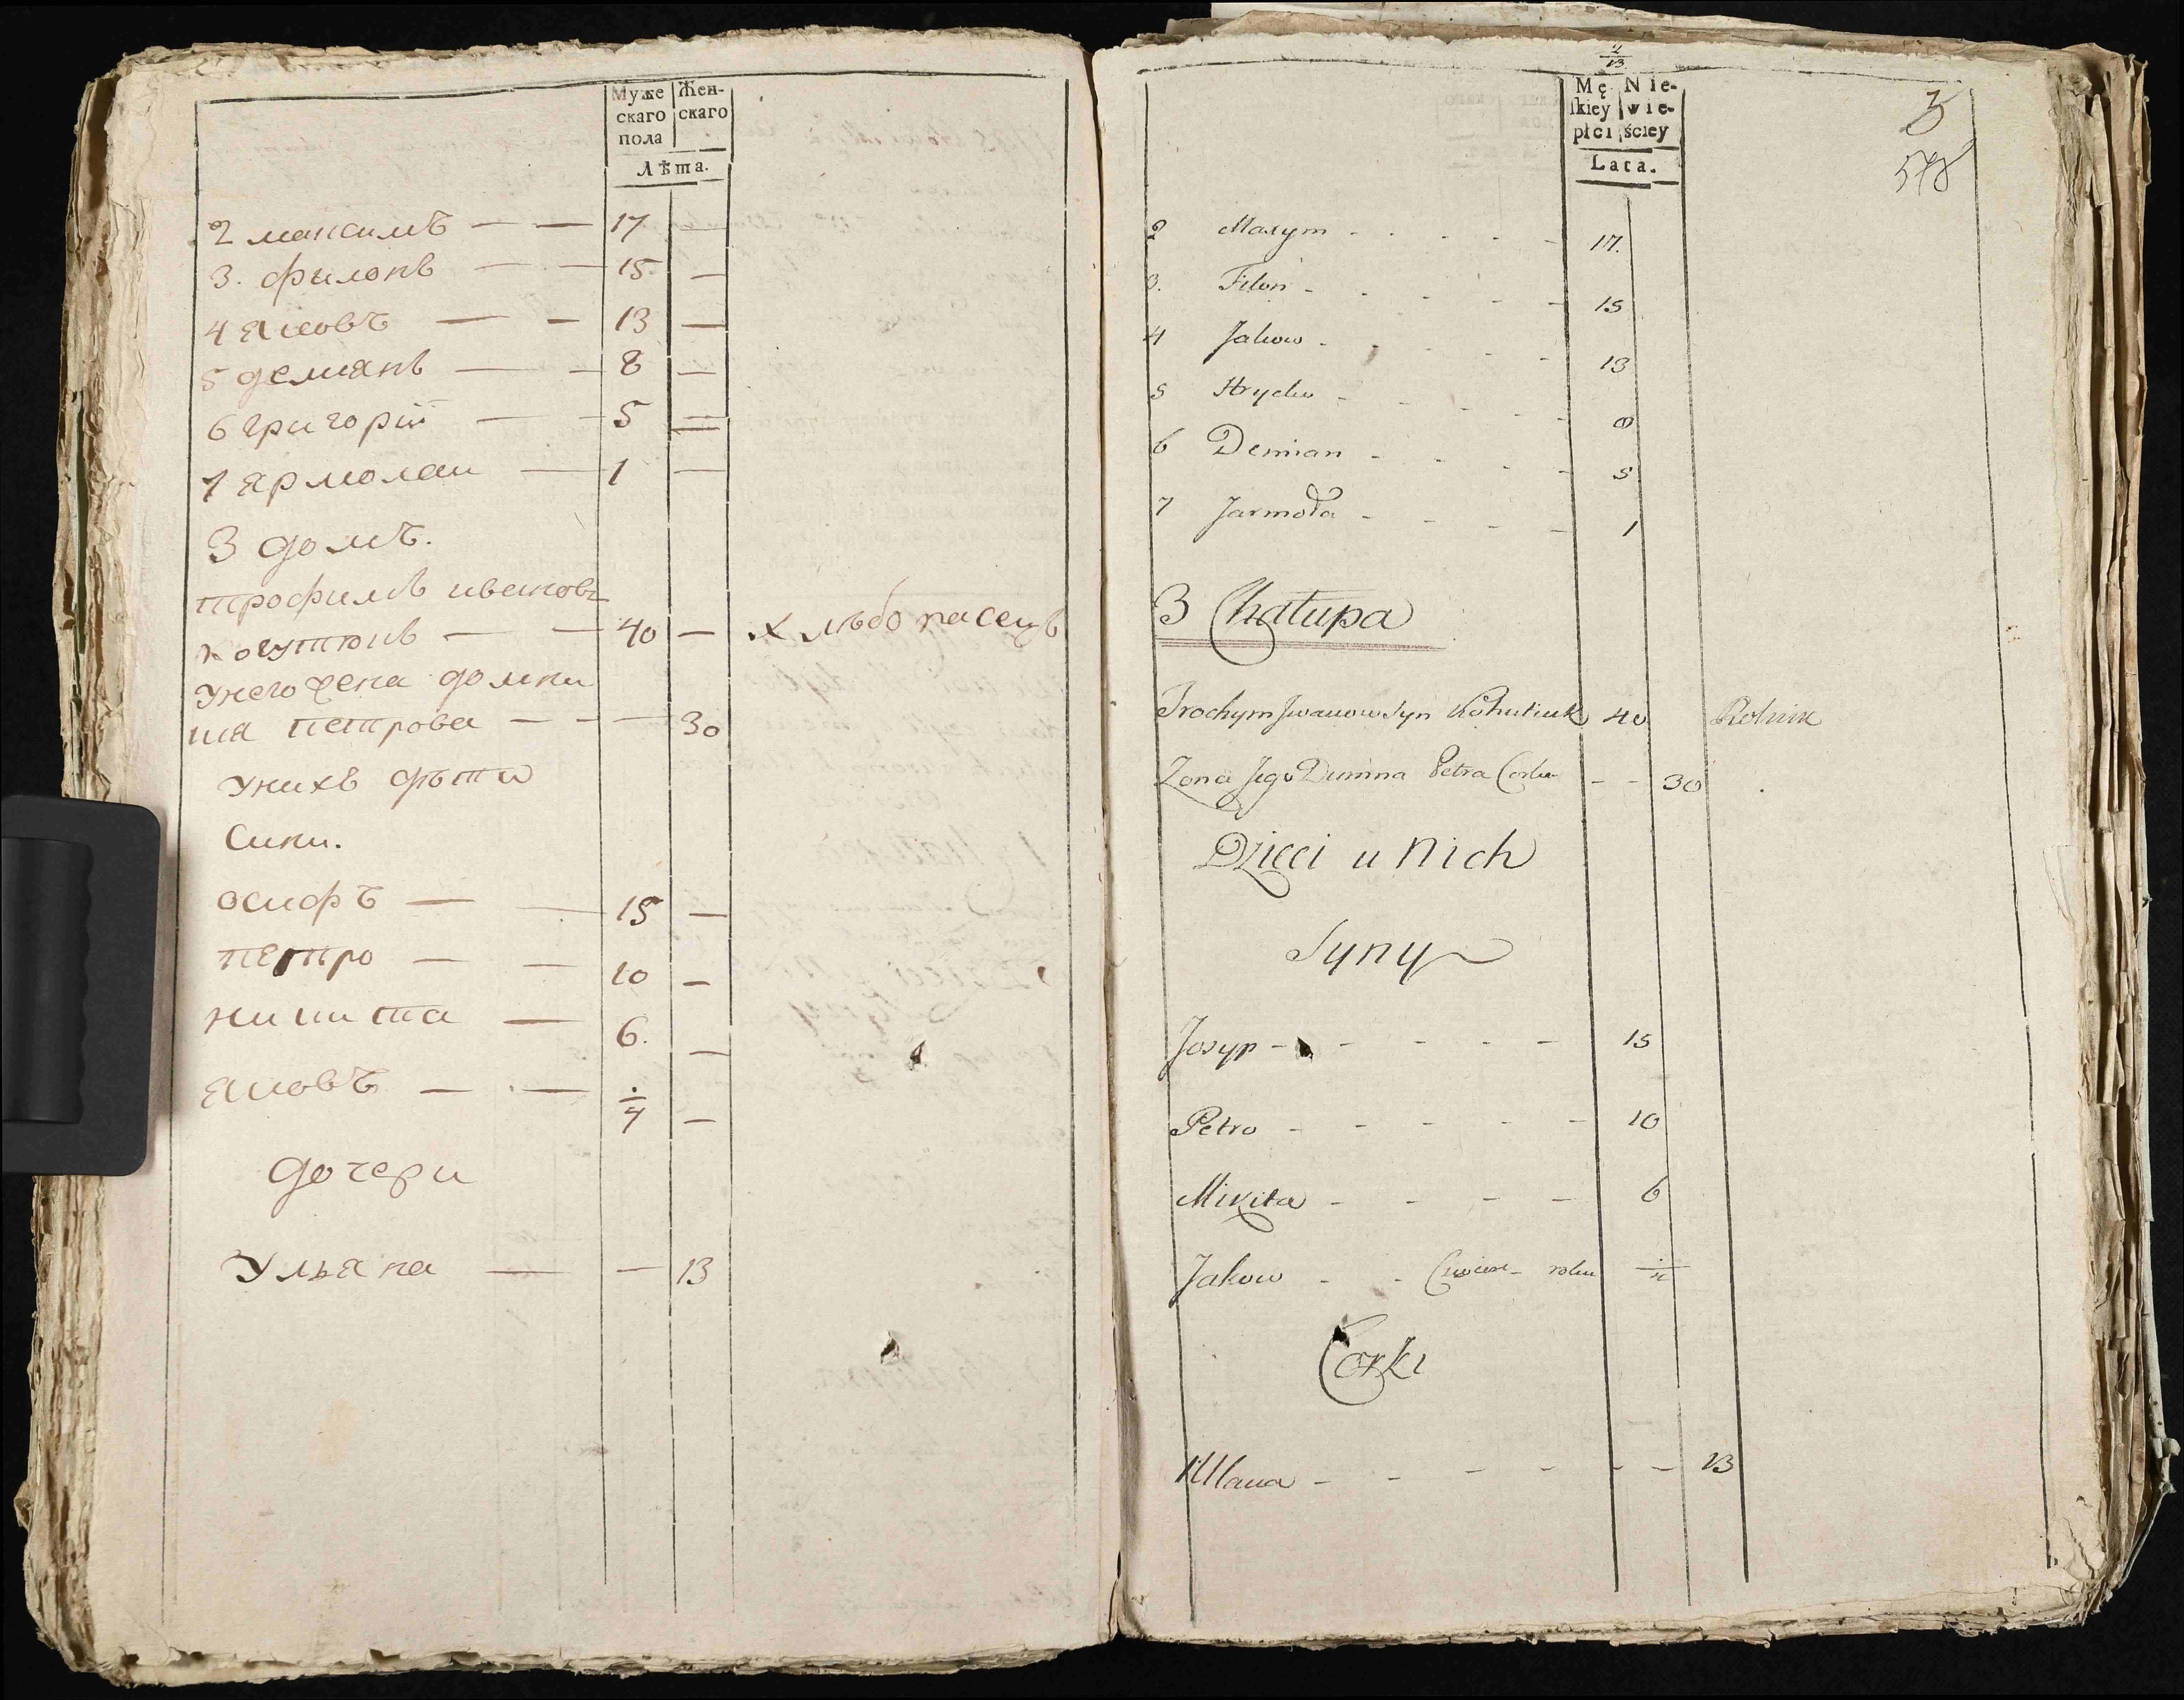 Муже
скаго
пола
Жен-
скаго
Лѣта.
2 максимъ — — 17 —
3. филонъ — — 15 —
4 яковъ — — 13 —
5 демянъ — — 8 —
6 григорій — — 5 —
7 ярмолаи — 1 —
3 домъ.
трофимъ ивановъ
когутюкъ — — 40 — хлѣбопасецъ
унего жена домни
кія петрова — — — 30
унихъ дѣти
сини.
осифъ — — 15 —
петро — — 10 —
никита — 6. —
яковъ — — 1/4 —
дочери
Ульяна — — 13
4/13
Mę
skiey
płci
Nie-
wie-
ściey
Lata.
3
578
2 Maxym - - - - 17.
3. Filon - - - - - 15
4 Jakow - - - - 13
5 Hrycko - - - - - 8
6 Demian - - - - 5
7 Jarmoła - - - - 1
3 Chałupa
Trochym Jwanow Syn Kohutiuk 40 Rolnik
Zona Jego Dumna Petra Corka - - 30
Dzieci u Nich
Syny
Josyp - - - - - 15
Petro - - - - - 10
Mikita - - - - 6
Jakow - - Cwierć roku 1/4
Corki
Ullana - - - - - - 13